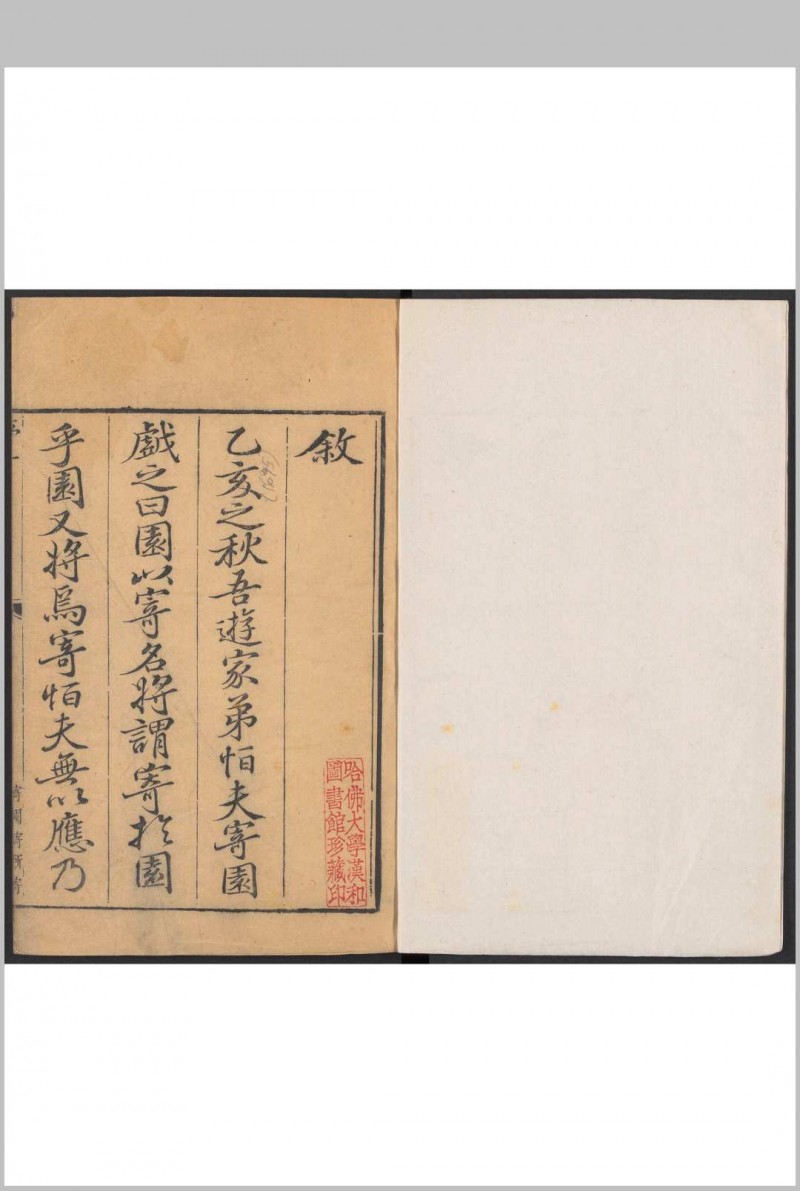 敘
乙亥之秋吾遊家弟恒夫寄園
戲之曰園以寄名將謂寄於園
乎園又將焉寄恒夫無以應乃
哈佛大學漢和
圖書館珍藏印
寄園寄所寄